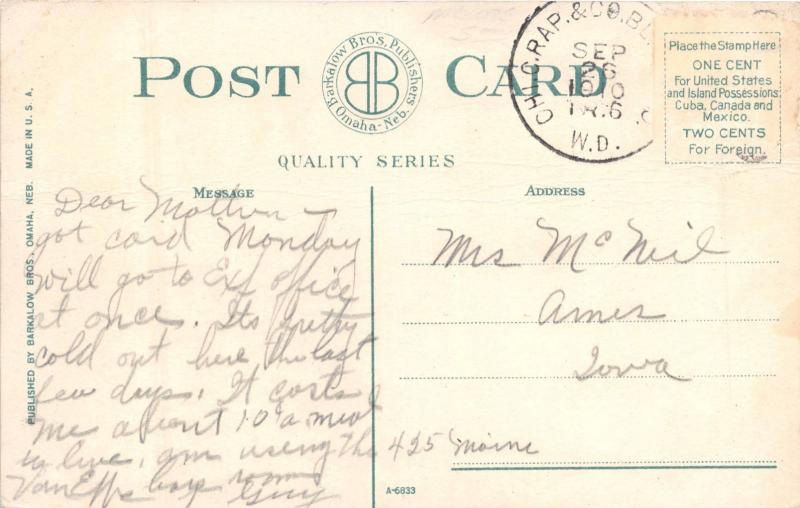 POST CARD
Barkalow Bro's. Publishers.
Omaha - Neb.
QUALITY SERIES
CHI. C. RAP. & CO. B
SEP
26
1910
TR. 6
W.D.
Place the Stamp Here
ONE CENT
For United States
and Island Possessions
Cuba, Canada and
Mexico.
TWO CENTS
For Foreign.
PUBLISHED BY BARKALOW BROS., OMAHA, NEB. MADE IN U. S. A.
MESSAGE
Dear Mother —
got card Monday
will go to Ex office
at once. Its pretty
cold out here the last
few days. It costs
me about 10¢ a meal
to live, am using the
Van Epps boys room
Guy
ADDRESS
Mrs McNeil
Ames
Iowa
425 Maine
A-6833